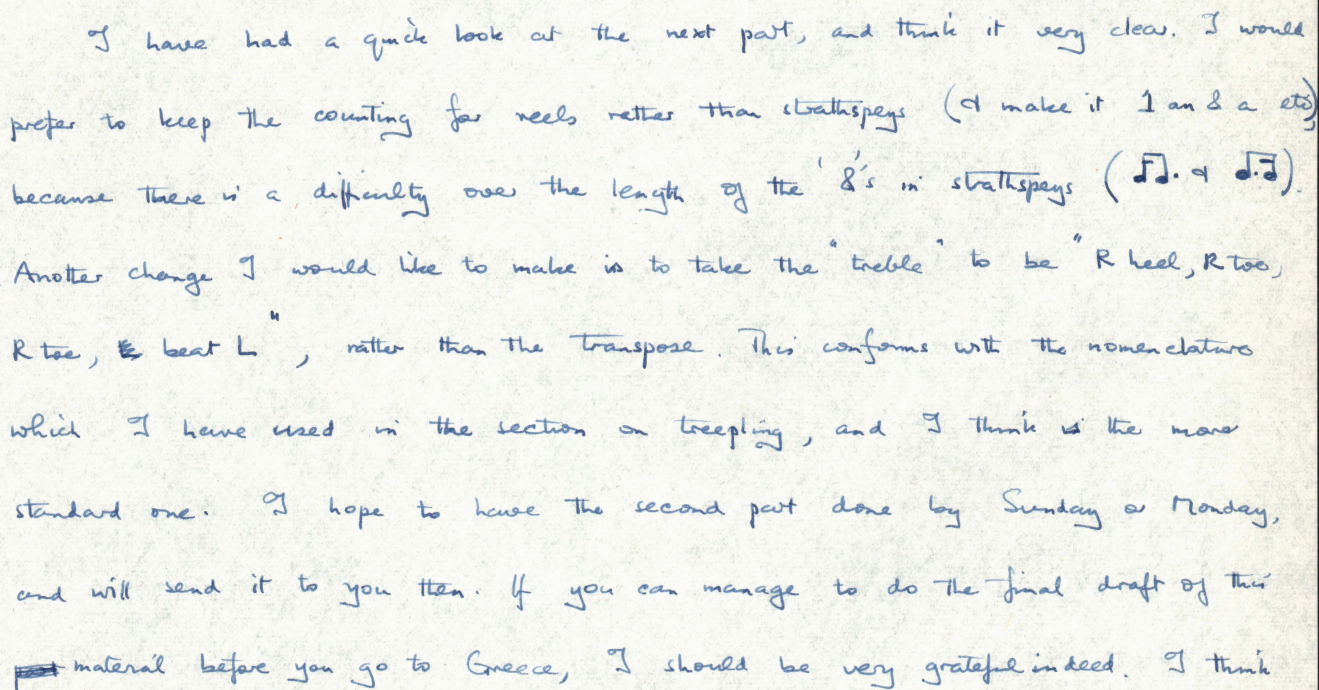 I have had a quick look at the next part, and think it very clear. I would
prefer to keep the counting for reels rather than strathspeys (& make it 1 an & a etc),
because there is a difficulty over the length of the '&'s in strathspeys (♬. & ♩.♬).
Another change I would like to make is to take the "treble" to be "R heel, R toe,
R toe, beat L", rather than the transpose. This conforms with the nomenclature
which I have used in the section on treepling, and I think is the more
standard one. I hope to have the second part done by Sunday or Monday,
and will send it to you then. If you can manage to do the final draft of this
material before you go to Greece, I should be very grateful indeed. I think